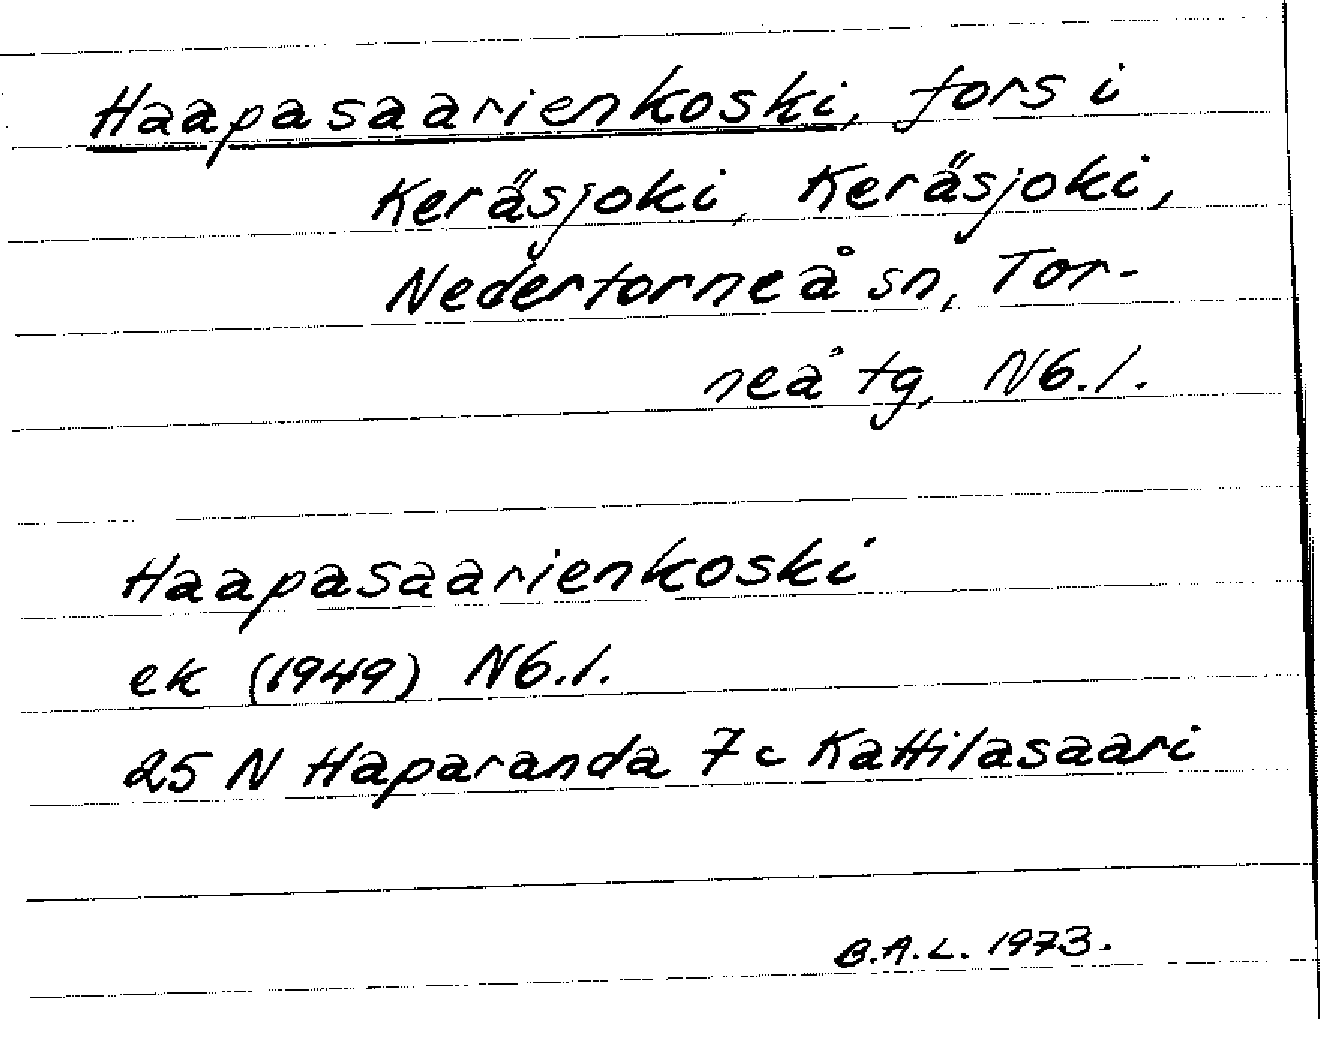 Haapasaarienkoski, fors i
Keräsjoki, Keräsjoki,
Nedertorneå sn, Tor-
neå tg, N6.1.
Haapasaarienkoski
ek (1949) N6.1.
25 N Haparanda 7c Kattilasaari
B.A.L. 1973.